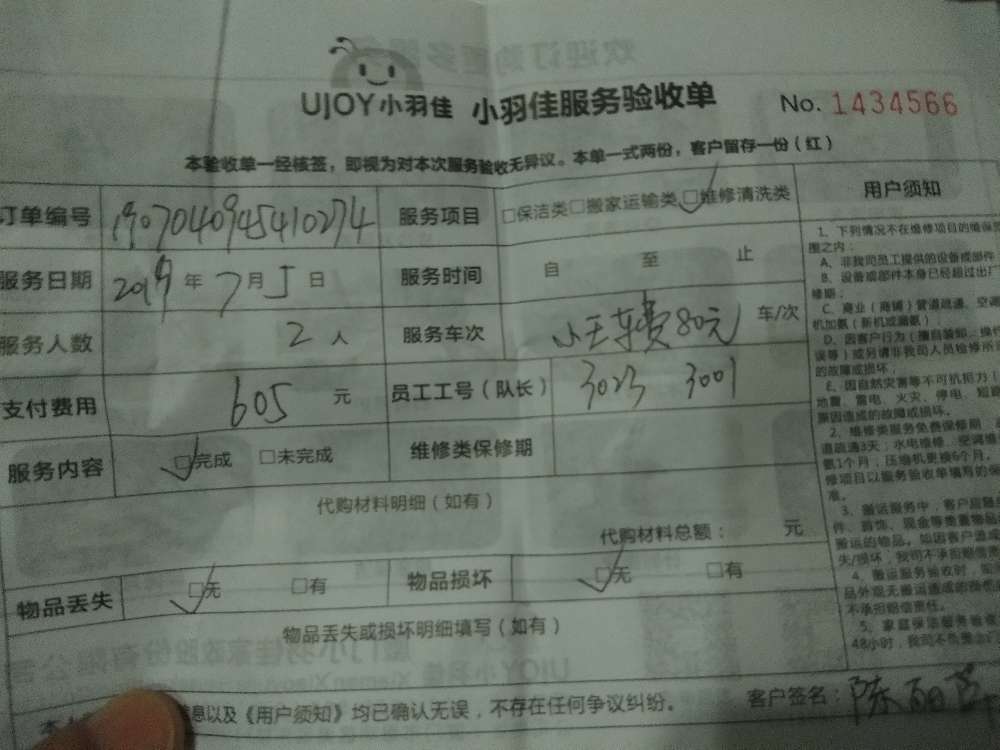 UJOY小羽佳 小羽佳服务验收单 No. 1434566
本验收单一经核签，即视为对本次服务验收无异议。本单一式两份，客户留存一份（红）
订单编号 1907040945410274 服务项目 □保洁类□搬家运输类□维修清洗类 用户须知
服务日期 2019年7月5日 服务时间 自 至 止
服务人数 2人 服务车次 小王车费80元 车/次
支付费用 605 元 员工工号（队长） 3023 3001
服务内容 □完成 □未完成 维修类保修期
代购材料明细（如有）
代购材料总额： 元
物品丢失 □无 □有 物品损坏 □无 □有
物品丢失或损坏明细填写（如有）
信息以及《用户须知》均已确认无误，不存在任何争议纠纷。
客户签名：陈丽
1、下列情况不在维修项目的维保范
围之内：
A、非我司员工提供的设备或部件
B、设备或部件本身已经超过出厂
修期；
C、商业（商铺）管道疏通、空调
机加氨（新机或漏氨）
D、因客户行为（擅自装卸、操作
误等）或另请非我司人员检修所
的故障或损坏；
E、因自然灾害等不可抗拒力（
地震、雷电、火灾、停电、短路
原因造成的故障或损坏。
2、维修类服务免费保修期
道疏通3天；水电维修、空调维
氨1个月；压缩机更换6个月，
修项目以服务验收单填写的保
准。
3、搬运服务中，客户应随
件、首饰、现金等贵重物品
搬运的物品，如因客户造成
失/损坏，我司不承担赔偿责
4、搬运服务验收时，
品外观无搬运造成的损伤
不承担赔偿责任。
5、家庭保洁服务验收
48小时，我司不负责